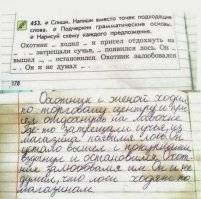 453. Спиши. Напиши вместо точек подходящие
слова. Подчеркни грамматические основы.
Нарисуй схему каждого предложения.
Охотник .. ходил .. и присел отдохнуть на
... затрещали сучья, .. появился лось. Он ..
вышел .., .. остановился. Охотник залюбовался
... Он и не думал ... .
178
Охотник с женой ходил
по торговому центру и при-
сел отдохнуть на лавочке.
Где-то затрещали сучья, из
магазина появился лось. Он
устало вышел с покупками,
вздохнул и остановился. Охот-
ник залюбовался им. Он и не
думал, что лоси ходят по
магазинам.